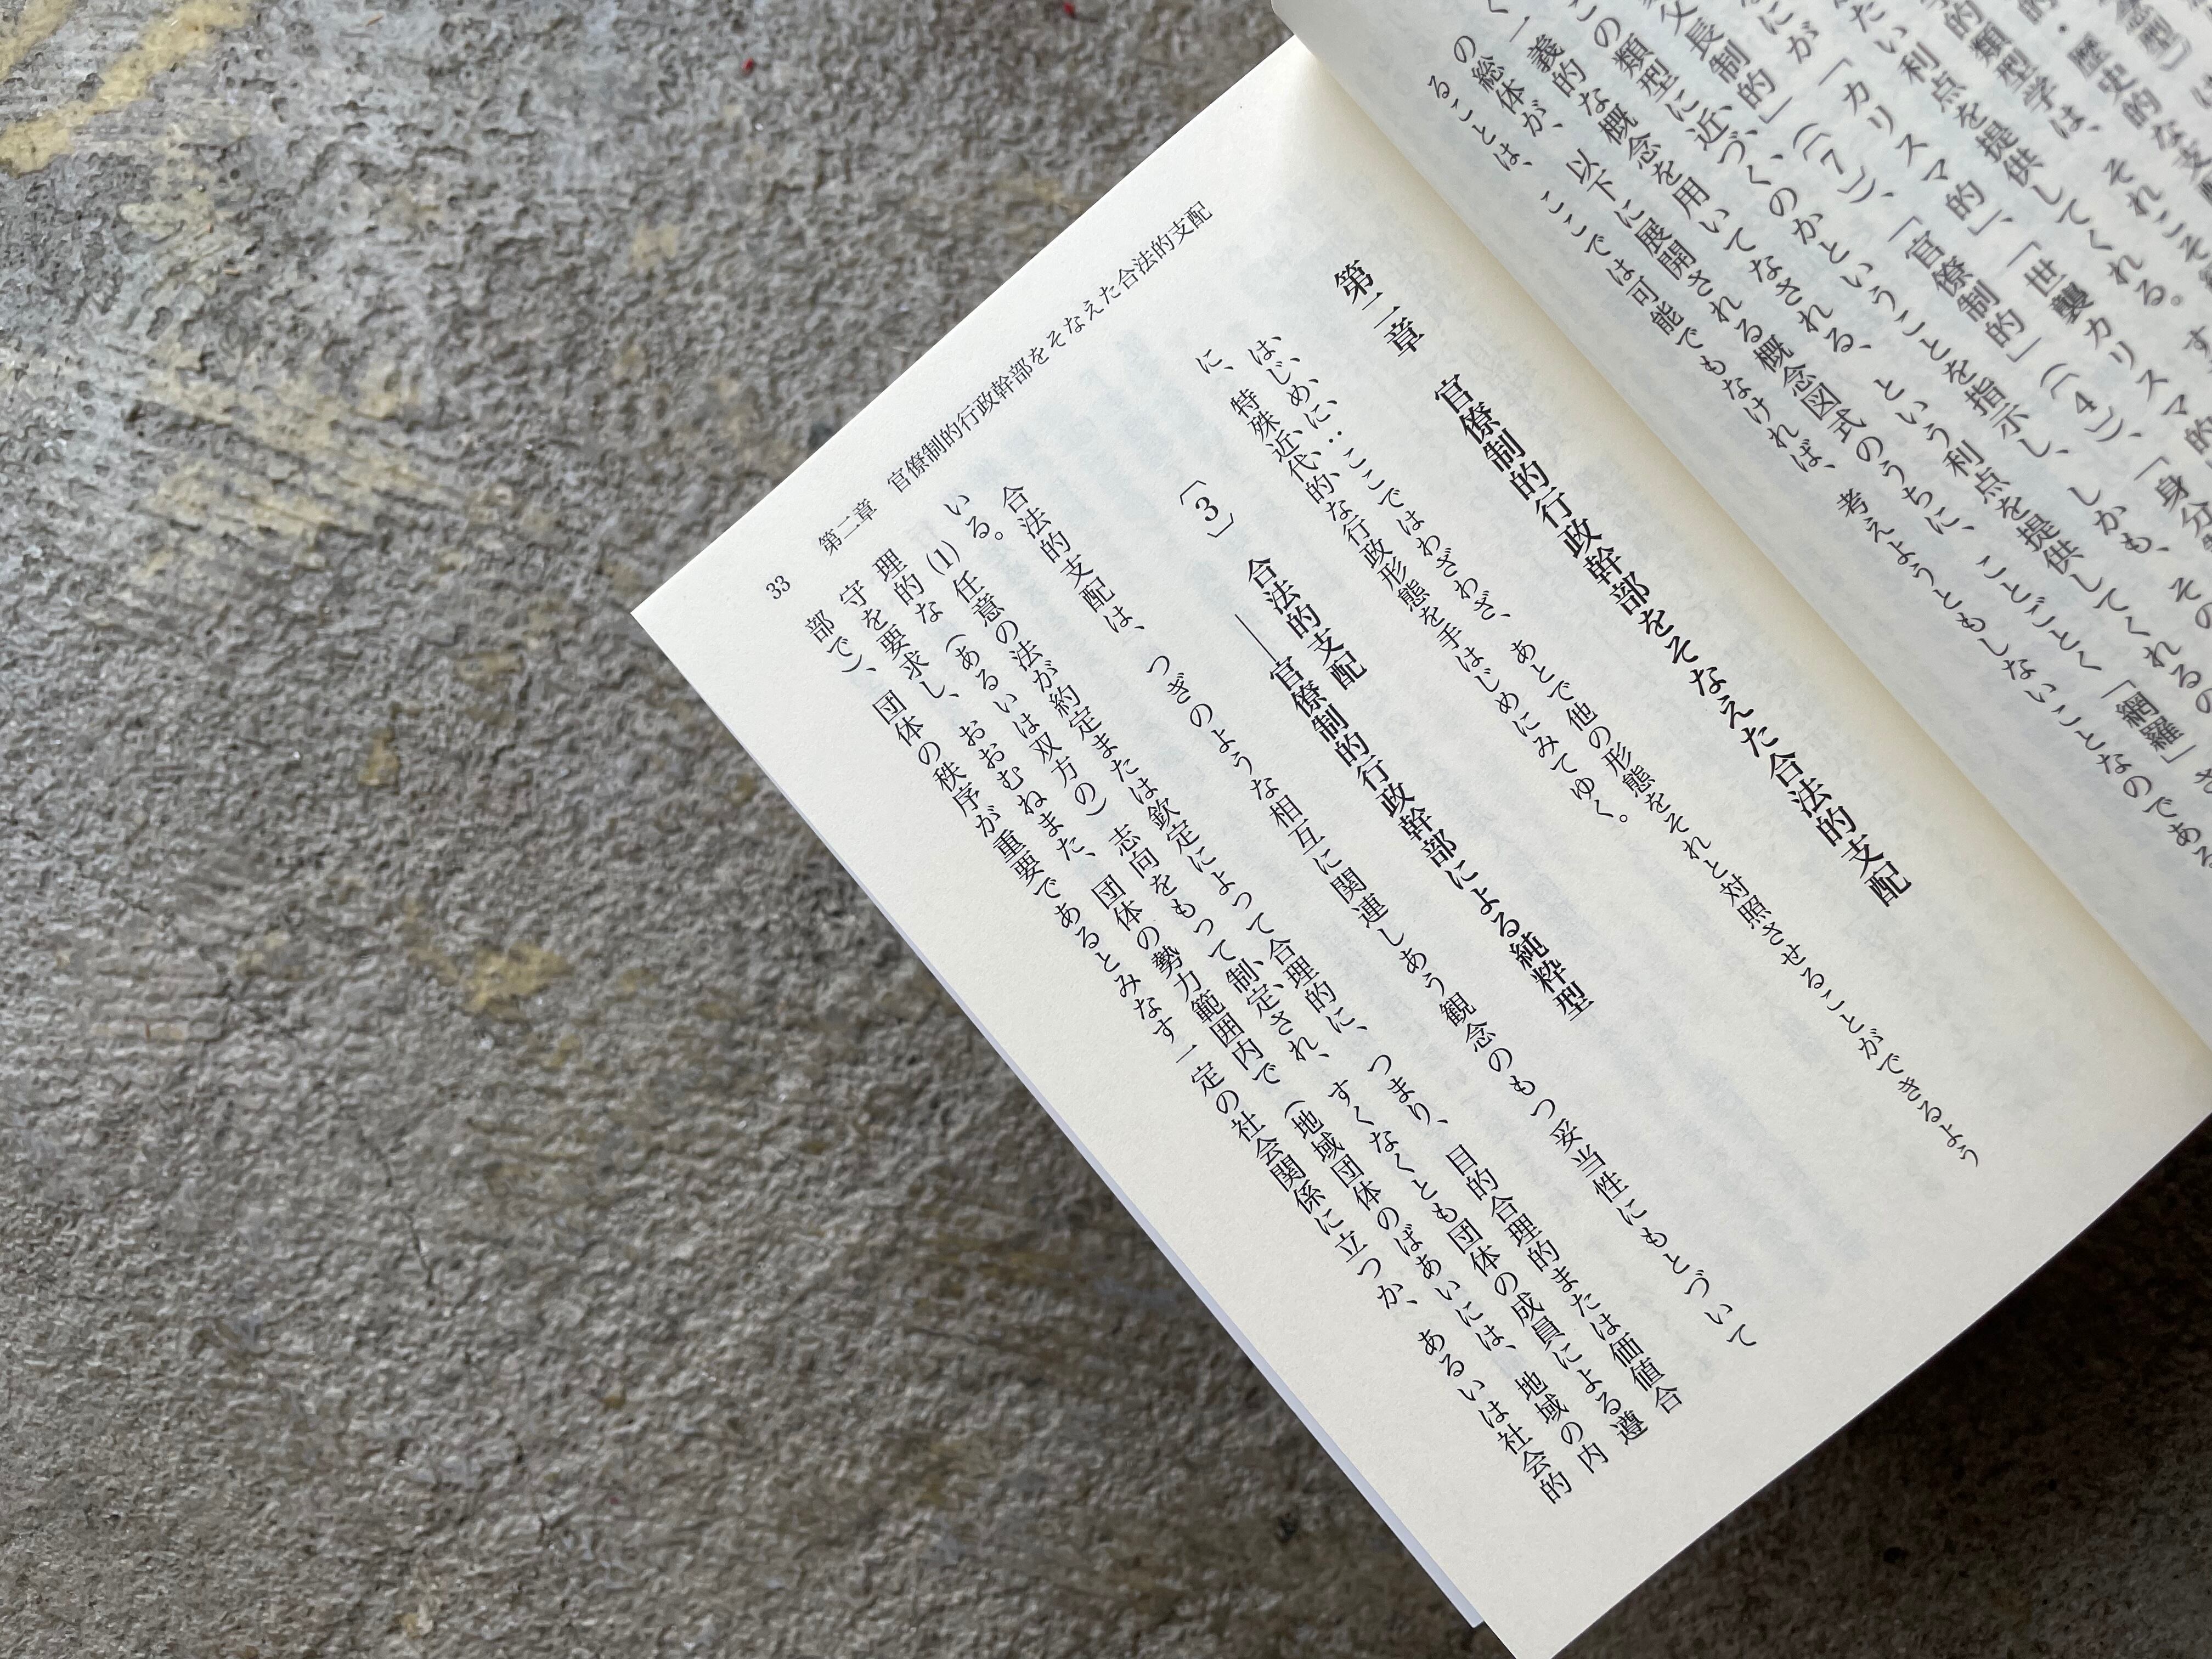 念型」
的・歴史的な支配
的類型学は、それこそ
たい利点を提供してくれる。す
なにが「カリスマ的」、「世襲カリスマ的
父長制的」(〔7〕)、「官僚制的」(〔4〕)、「身分
この類型に近づくのかということを指示し、しかも、その
く一義的な概念を用いてなされる、という利点を提供してくれるの
の総体が、以下に展開される概念図式のうちに、ことごとく「網羅」さ
ることは、ここでは可能でもなければ、考えようともしないことなのである
第二章　官僚制的行政幹部をそなえた合法的支配
はじめに：ここではわざわざ、あとで他の形態をそれと対照させることができるよう
に、特殊近代的な行政形態を手はじめにみてゆく。
〔3〕　合法的支配
――官僚制的行政幹部による純粋型
合法的支配は、つぎのような相互に関連しあう観念のもつ妥当性にもとづいて
いる。
(1) 任意の法が約定または欽定によって合理的に、つまり、目的合理的または価値合
理的な（あるいは双方の）志向をもって制定され、すくなくとも団体の成員による遵
守を要求し、おおむねまた、団体の勢力範囲内で（地域団体のばあいには、地域の内
部で）、団体の秩序が重要であるとみなす一定の社会関係に立つか、あるいは社会的
第二章　官僚制的行政幹部をそなえた合法的支配
33